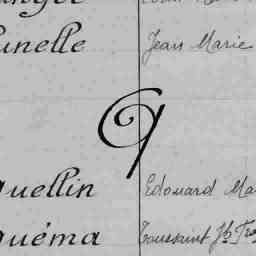 unelle Jean Marie
Q
uellin Edouard Ma
uéma Toussaint Jh